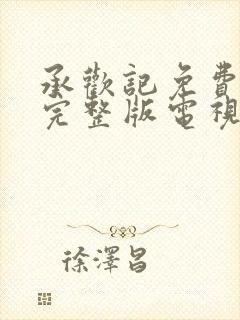 承歡記免費
完整版電視
徐澤昌